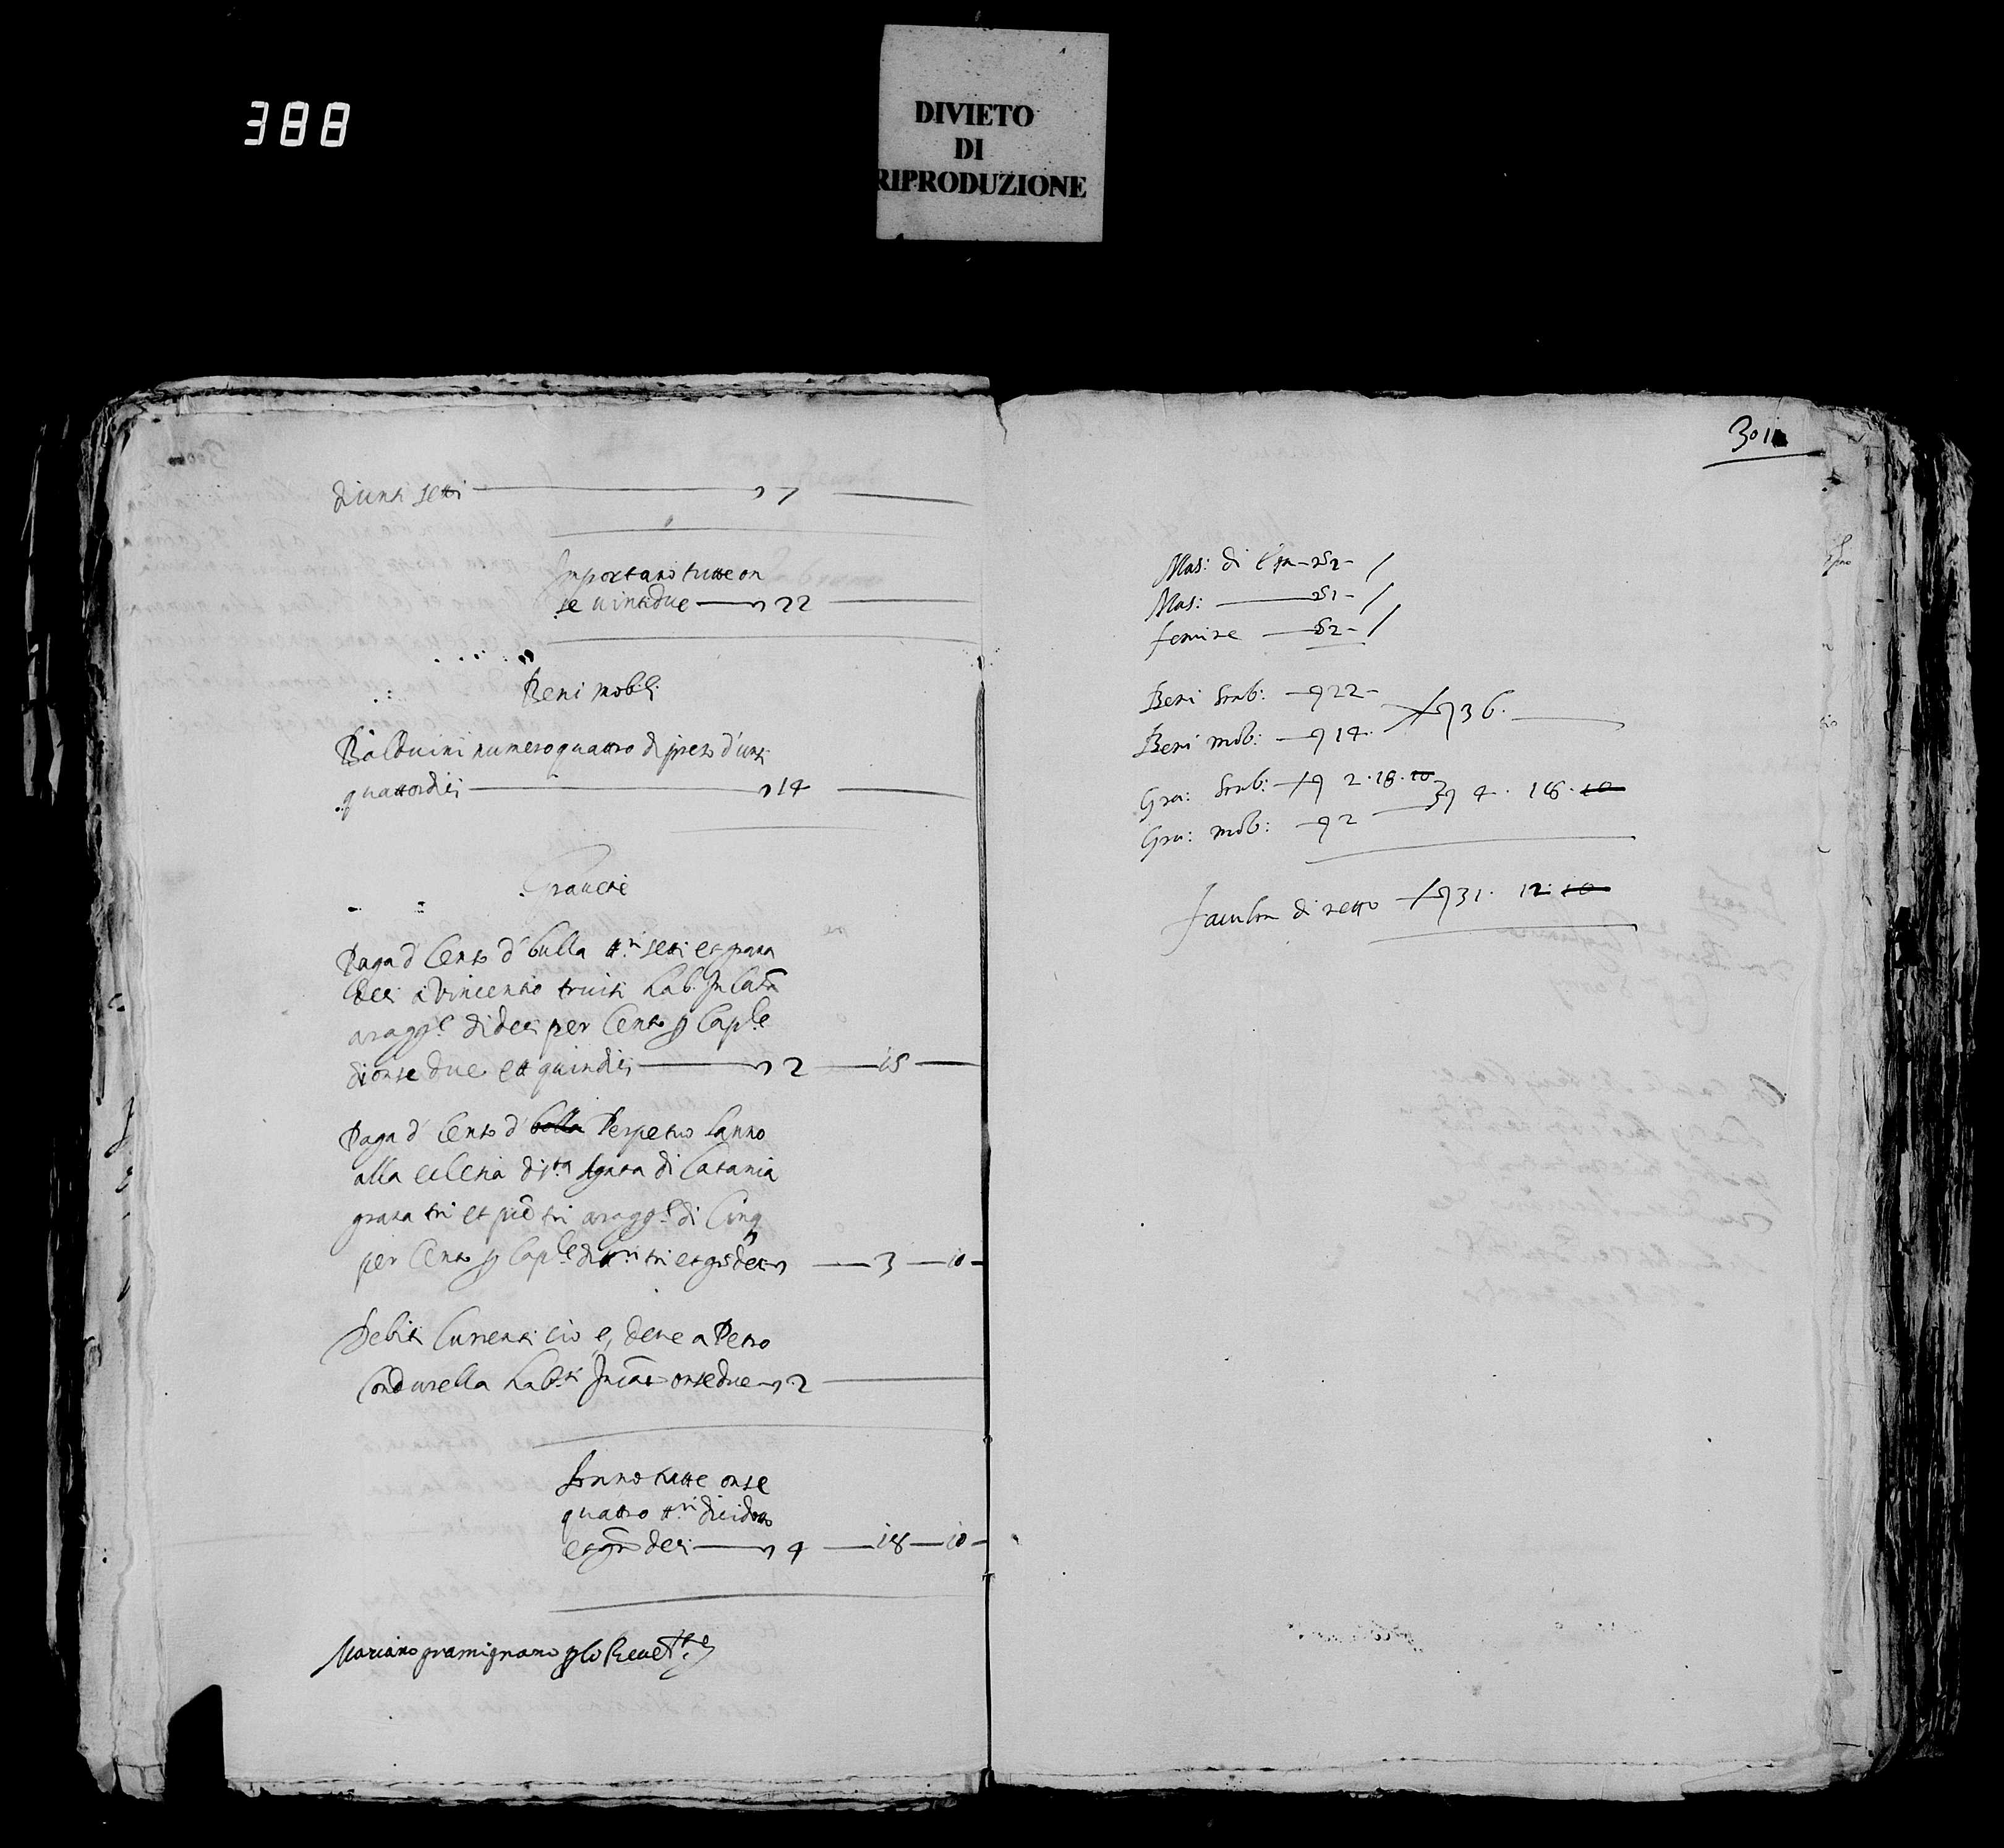 388
DIVIETO
DI
RIPRODUZIONE
d'unti setti — 7 —
Inportano tutte on
se vintidue — 22 —
Beni mobili
Balduini numero quattro di prezo d'unti
quattordici — 14 —
Gravezie
Paga d' Censo d' bulla tt.ri setti et grana
deci a Vincentio truiti hab. In Cata
aragg.e di deci per Cento p Cap.le
di onse due et quindici — 2 — 15 —
Paga d' Censo d' bolla Perpetuo l'anno
alla eclesia di s.ta Agata di Catania
grana tri et pic tri aragg.e di Cinq
per Cento p Cap.le di tt.ri tri et gr deci — 3 — 10 —
Debiti Currenti cio e, deve a Petro
Condurella hab.ti In Cat. onse due — 2 —
Sonno tutte onse
quattro tt.ri dicidotto
et gr deci — 4 — 18 — 10 —
Mariano gramignano p lo Revel.te
301
Mas: di Età — n 2 — /
Mas: — n 1 — /
femine — n 2 — /
Beni Stab: — 22 —
Beni mob: — 14. 36. —
Gra: Stab: — 2 . 18 . 10
4 . 18 . 10
Gra: mob: — 2 —
facultà di netto 31. 12 10